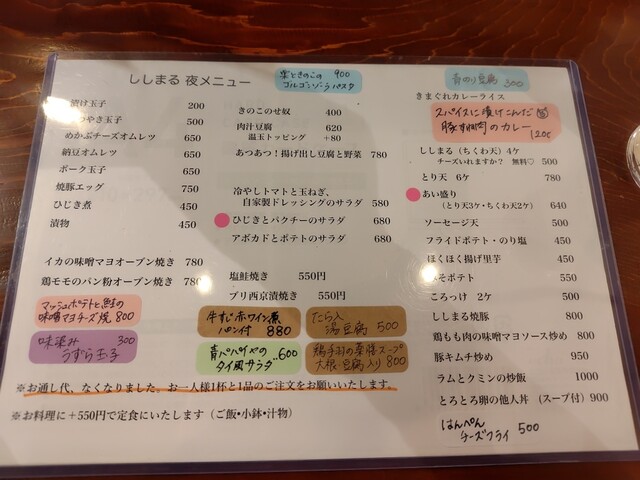 ししまる 夜メニュー
漬け玉子 200
やき玉子 500
めかぶチーズオムレツ 650
納豆オムレツ 650
ポーク玉子 650
焼豚エッグ 750
ひじき煮 450
漬物 450
イカの味噌マヨオープン焼き 780
鶏モモのパン粉オープン焼き 780
マッシュポテトと鮭の
味噌マヨチーズ焼 800
味染み 300
うずら玉子
きのこの 900
ゴルゴンゾーラパスタ
きのこのせ奴 400
肉汁豆腐 620
温玉トッピング +80
あつあつ!揚げ出し豆腐と野菜 780
冷やしトマトと玉ねぎ、
自家製ドレッシングのサラダ 580
ひじきとパクチーのサラダ 680
アボカドとポテトのサラダ 680
塩鮭焼き 550円
ブリ西京漬焼き 550円
牛すじ赤ワイン煮
パン付 880
たら入
湯豆腐 500
青パパイヤの 600
タイ風サラダ
鶏手羽の薬膳スープ
大根・豆腐入り 800
青のり豆腐 300
きまぐれカレーライス
スパイスに漬けこんだ
豚 肉のカレー
1200
ししまる(ちくわ天)4ケ
チーズいれますか? 無料♡ 500
とり天 6ケ 780
あい盛り
(とり天3ケ・ちくわ天2ケ) 640
ソーセージ天 500
フライドポテト・のり塩 450
ほくほく揚げ里芋 450
みそポテト 550
ころっけ 2ケ 500
ししまる焼豚 800
鶏もも肉の味噌マヨソース炒め 800
豚キムチ炒め 950
ラムとクミンの炒飯 1000
とろとろ卵の他人丼 (スープ付) 900
はんぺん
チーズフライ 500
※お通し代、なくなりました。お一人様1杯と1品のご注文をお願いいたします。
※お料理に+550円で定食にいたします(ご飯・小鉢・汁物)